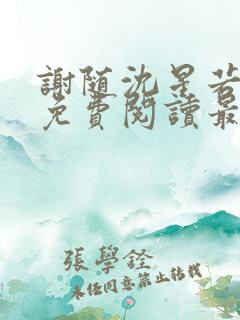 謝随沈星若
免費閱讀最
張學銓
未任同意禁止轉載